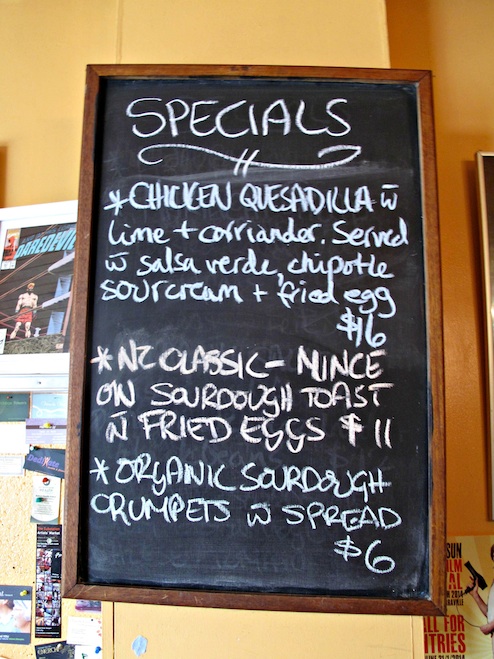 SPECIALS
* CHICKEN QUESADILLA w̄
lime + corriander. Served
w̄ salsa verde, chipotle
sourcream + fried egg
$16
* NZ CLASSIC - MINCE
ON SOURDOUGH TOAST
w̄ FRIED EGGS $11
* ORGANIC SOURDOUGH
CRUMPETS w̄ SPREAD
$6
DAREDEVIL
SUN
ILM
AL
2014
ALL FOR
TRIES